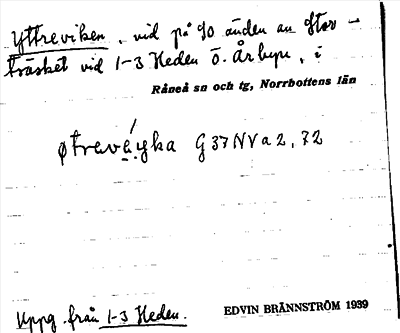 Yttreviken, vik på SO änden av Stor-
träsket vid 1-3 Heden Ö. Årbyn, i
Råneå sn och tg, Norrbottens län
øtrevé̬yka G37NVa2, 72
Uppg. från 1-3 Heden.
EDVIN BRÄNNSTRÖM 1939